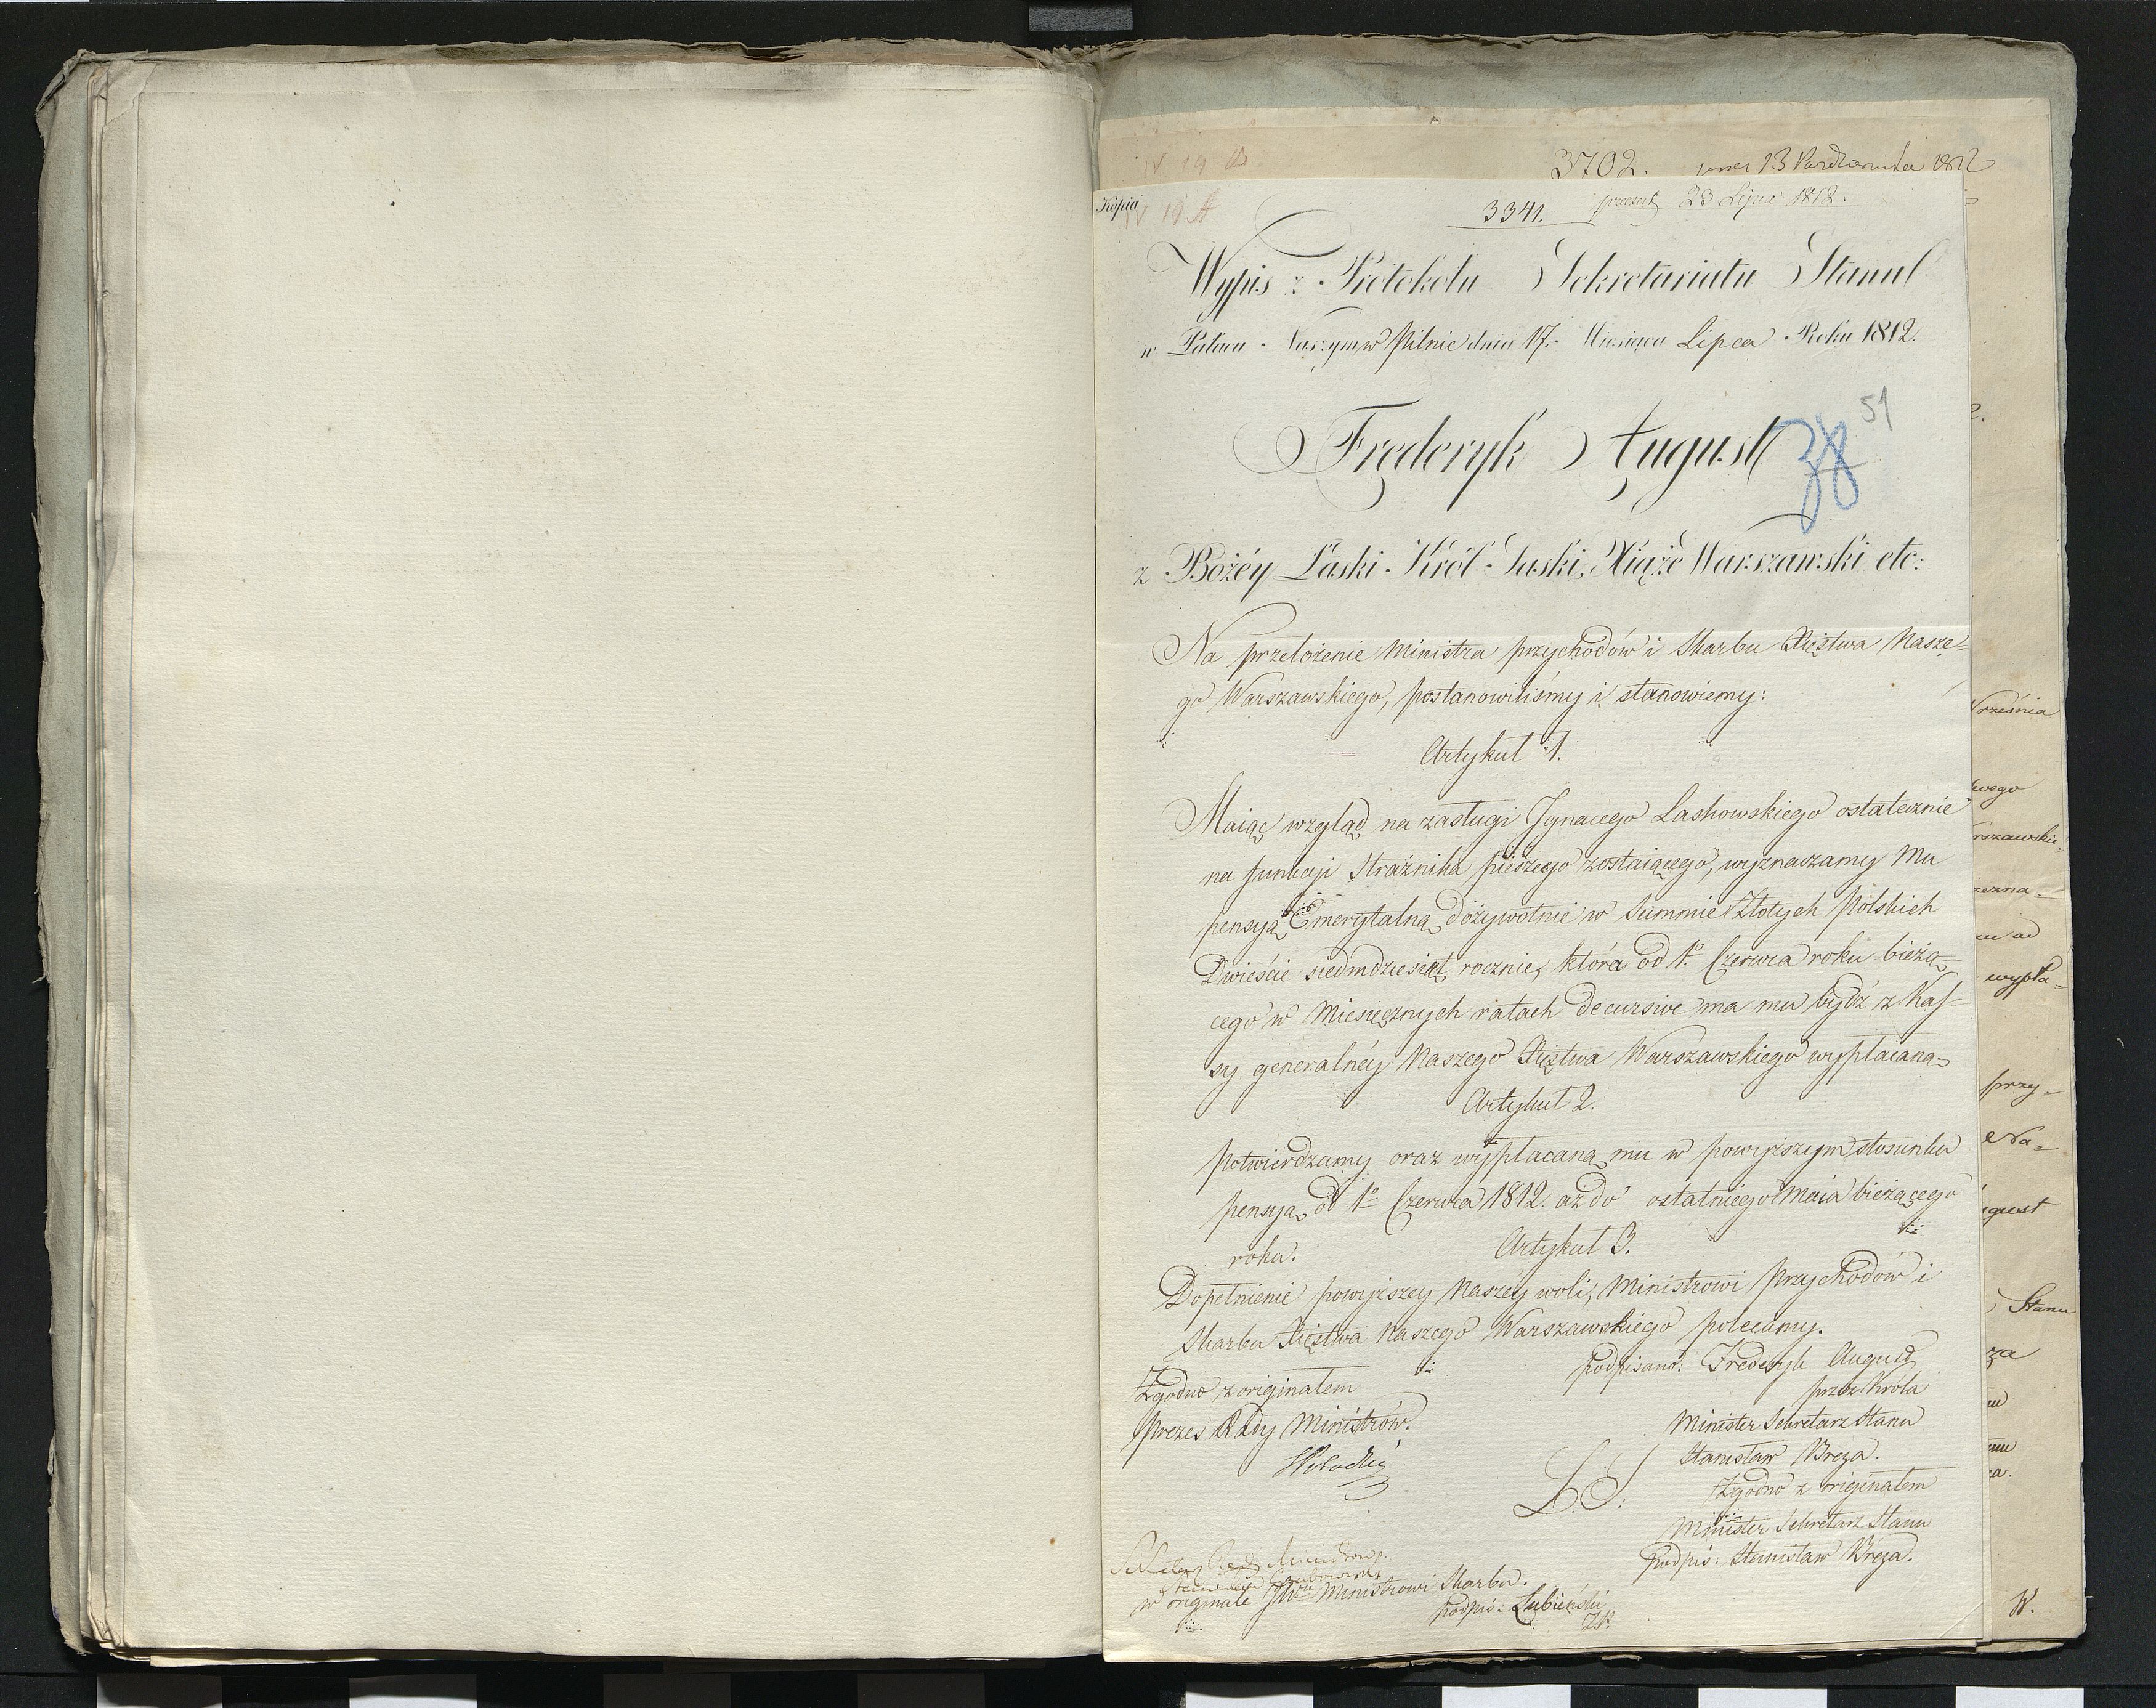 IV 19 B
3702. 13 Października 1812
Kopia
IV 19 A
3341. 23 Lipca 1812.
Wypis z Protokołu Sekretariatu Stanu
w Pałacu Naszym w Pilnic dnia 17. Miesiąca Lipca Roku 1812.
51
Fryderyk August
38
z Bożéy Łaski Król Saski, Xiąże Warszawski etc:
Na przełożenie Ministra przychodów i Skarbu Xięstwa Nasze-
go Warszawskiego, postanowiliśmy i stanowiemy:
Artykuł 1.
Maiąc wzgląd na zasługi Jgnacego Laskowskiego ostatecznie
na funkcji Strażnika pieszego zostaiącego, wyznaczamy mu
pensyą Emerytalną dożywotnie w Summie Złotych Polskich
Dwieście siedmdziesiąt rocznie, która od 1o Czerwca roku bieżą-
cego w Miesięcznych ratach decursive ma mu bydź z Kas-
sy generalnéy Naszego Xięstwa Warszawskiego wypłacaną.
Artykuł 2.
Potwierdzamy oraz wypłacaną mu w powyższym stosunku
pensyą od 1o Czerwca 1812. aż do ostatniego Maia bieżącego
roku.
Artykuł 3.
Dopełnienie powyższey Naszéy woli, Ministrowi Przychodów i
Skarbu Xięstwa Naszego Warszawskiego polecamy.
podpisano: Frederyk August
Zgodno z originałem
przez Króla
Prezes Rady Ministrów.
Minister Sekretarz Stanu
Stanisław Breza.
L. S.
Zgodno z originałem
Minister Sekretarz Stanu
podpis: Stanisław Breza.
Sekretarz Rady Ministrów
w originale JWu Ministrowi Skarbu.
podpis: Łubieński
Września
wego
rszawskie
wypła-
przy-
Na-
gust
Stanu
za
W.